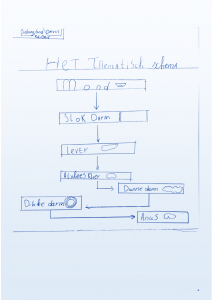 HET Thematisch schema
Mond
Slok Darm
Lever
Dunne darm
Dikke darm
Anus